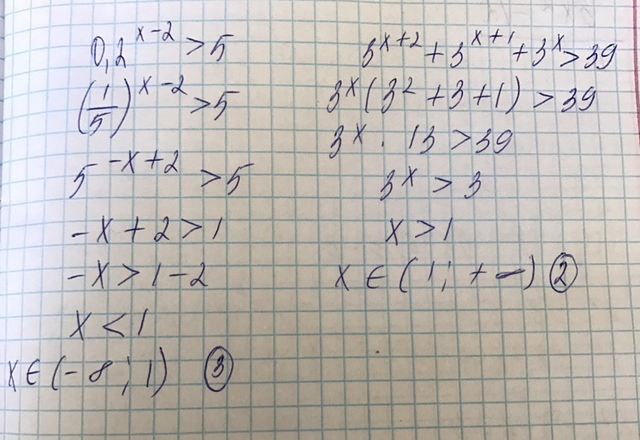 0,2^{x-2} > 5
(1/5)^{x-2} > 5
5^{-x+2} > 5
-x + 2 > 1
-x > 1 - 2
x < 1
x ∈ (-∞; 1) ③
3^{x+2} + 3^{x+1} + 3^x > 39
3^x (3^2 + 3 + 1) > 39
3^x · 13 > 39
3^x > 3
x > 1
x ∈ (1; +∞) ②